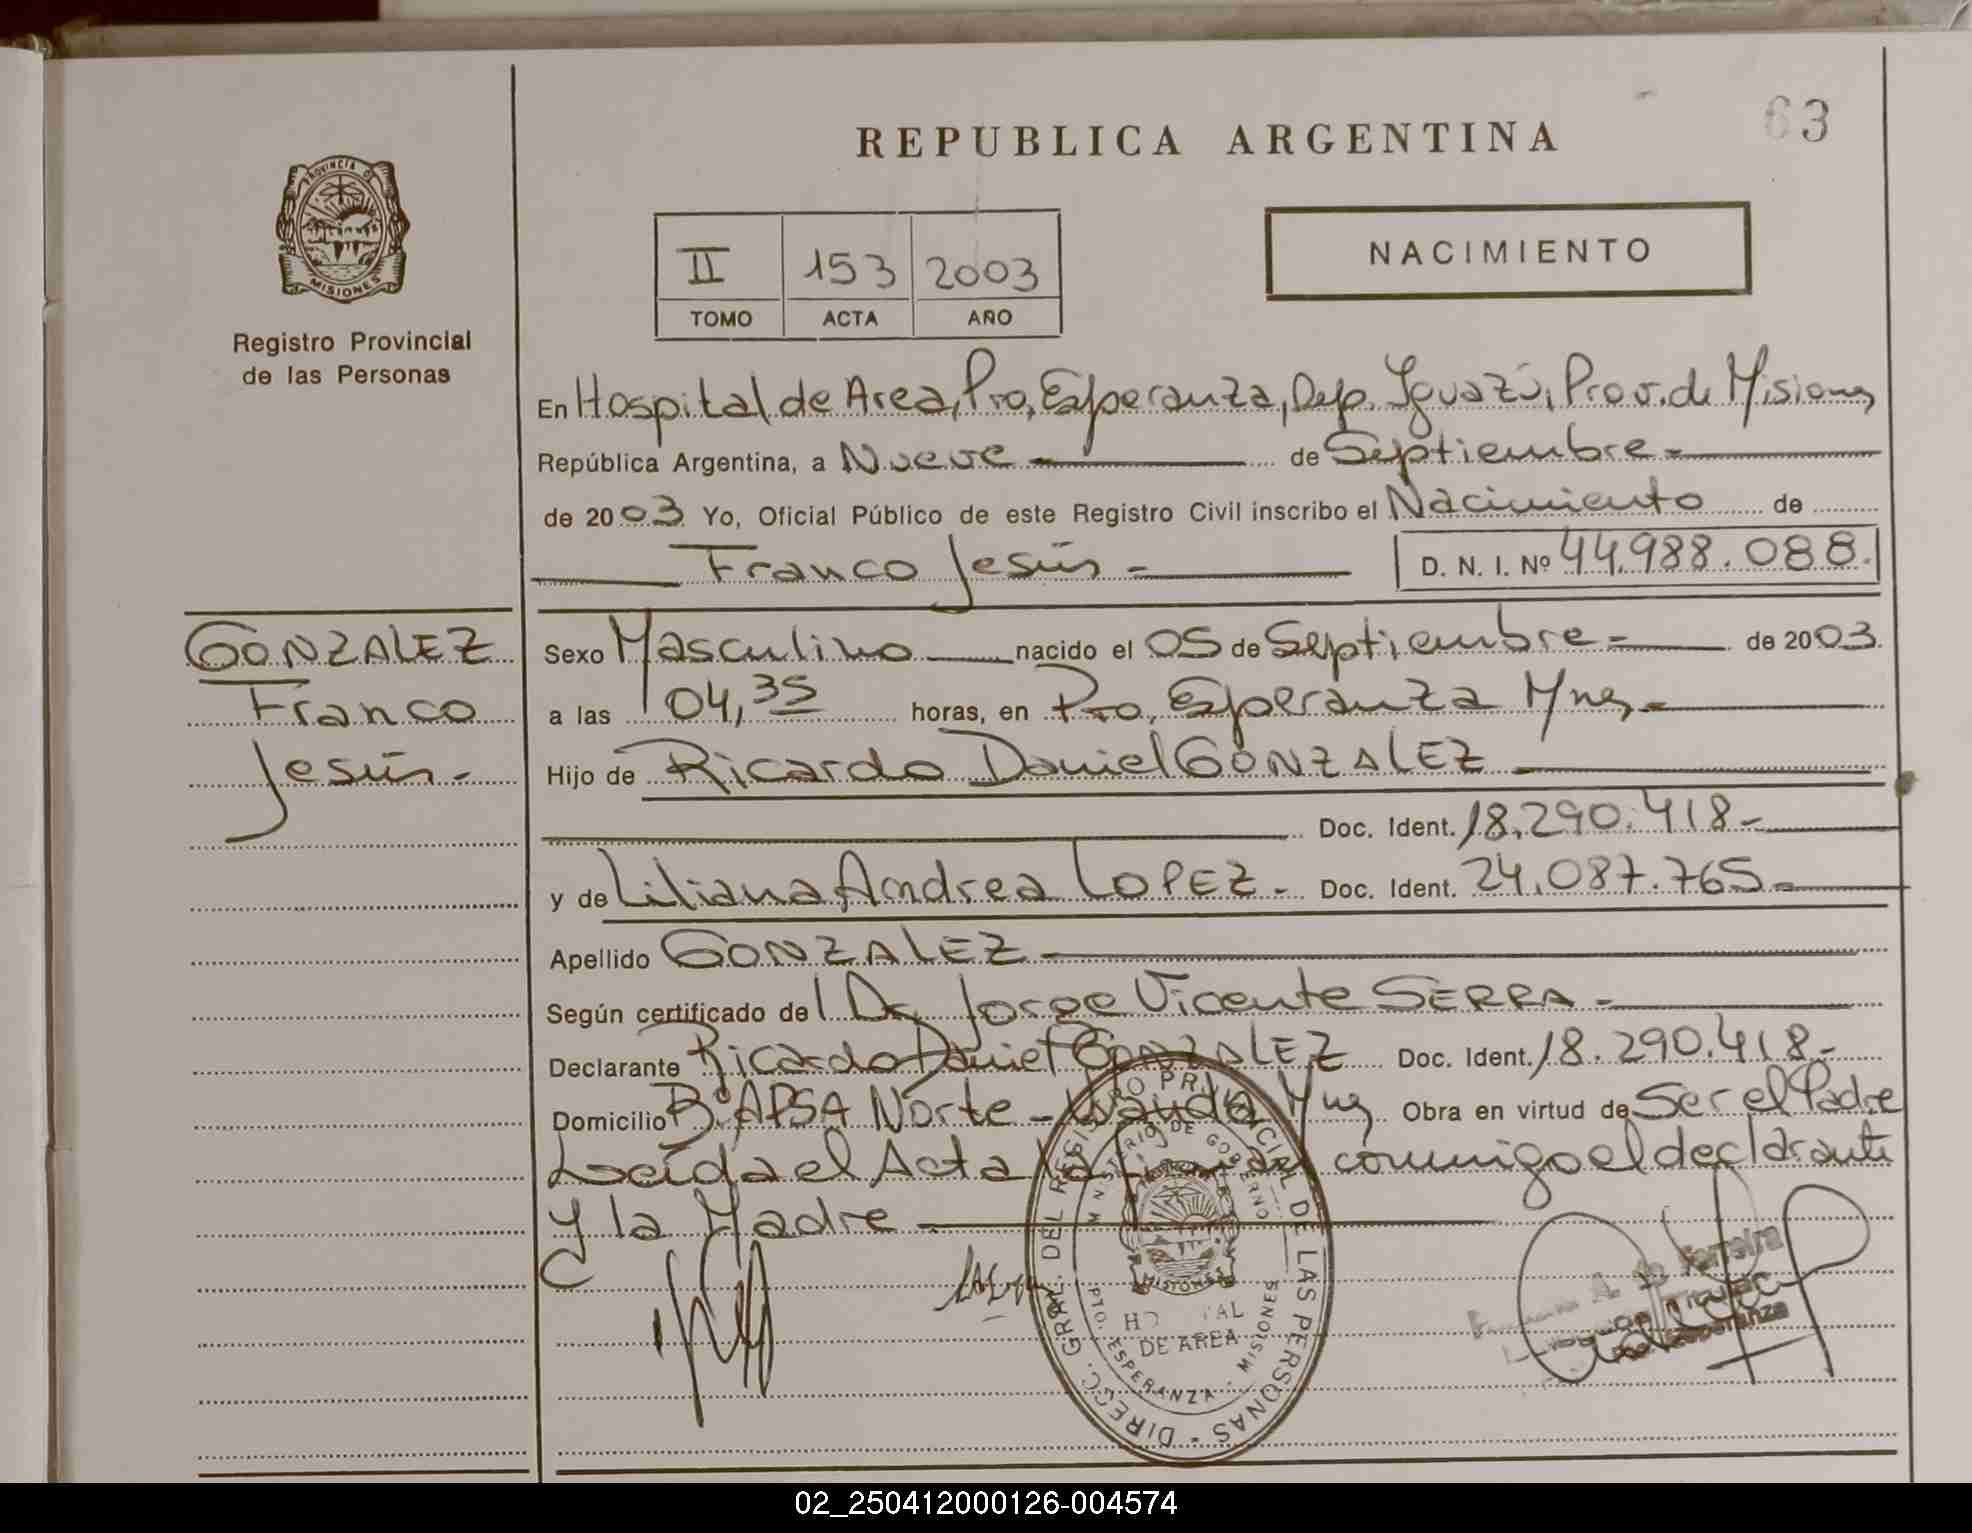 63
REPUBLICA ARGENTINA
PROVINCIA DE
MISIONES
Registro Provincial
de las Personas
II 153 2003
TOMO ACTA AÑO
NACIMIENTO
En Hospital de Area, Pto, Esperanza, Dep. Iguazú, Prov. de Misiones
República Argentina, a Nueve de Septiembre
de 2003 Yo, Oficial Público de este Registro Civil inscribo el Nacimiento de
Franco Jesús - D. N. I. Nº 44.988.088.
GONZALEZ
Franco
Jesús -
Sexo Masculino nacido el 05 de Septiembre = de 2003.
a las 04,35 horas, en Pto, Esperanza Mnes -
Hijo de Ricardo Daniel GONZALEZ
Doc. Ident. 18.290.418 -
y de Liliana Andrea LOPEZ - Doc. Ident. 24.087.765 -
Apellido GONZALEZ
Según certificado del Dr, Jorge Vicente SERRA -
Declarante Ricardo Daniel GONZALEZ Doc. Ident. 18.290.418 -
Domicilio Bº APSA Norte - Wanda Mnes Obra en virtud de Ser el Padre
Leída el Acta la conmigo el declarante
y la Madre
DIRECC. GRAL. DEL REGISTRO PROVINCIAL DE LAS PERSONAS -
MINISTERIO DE GOBERNO
MISIONES
DE AREA
PTO. ESPERANZA - MISIONES
Ferreira
02_250412000126-004574